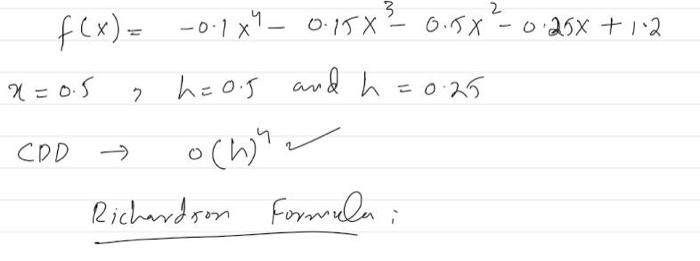 f(x) = -0.1x⁴ - 0.15x³ - 0.5x² - 0.25x + 1.2
x = 0.5 , h = 0.5 and h = 0.25
CDD → O(h)⁴ ✓
Richardson Formula :